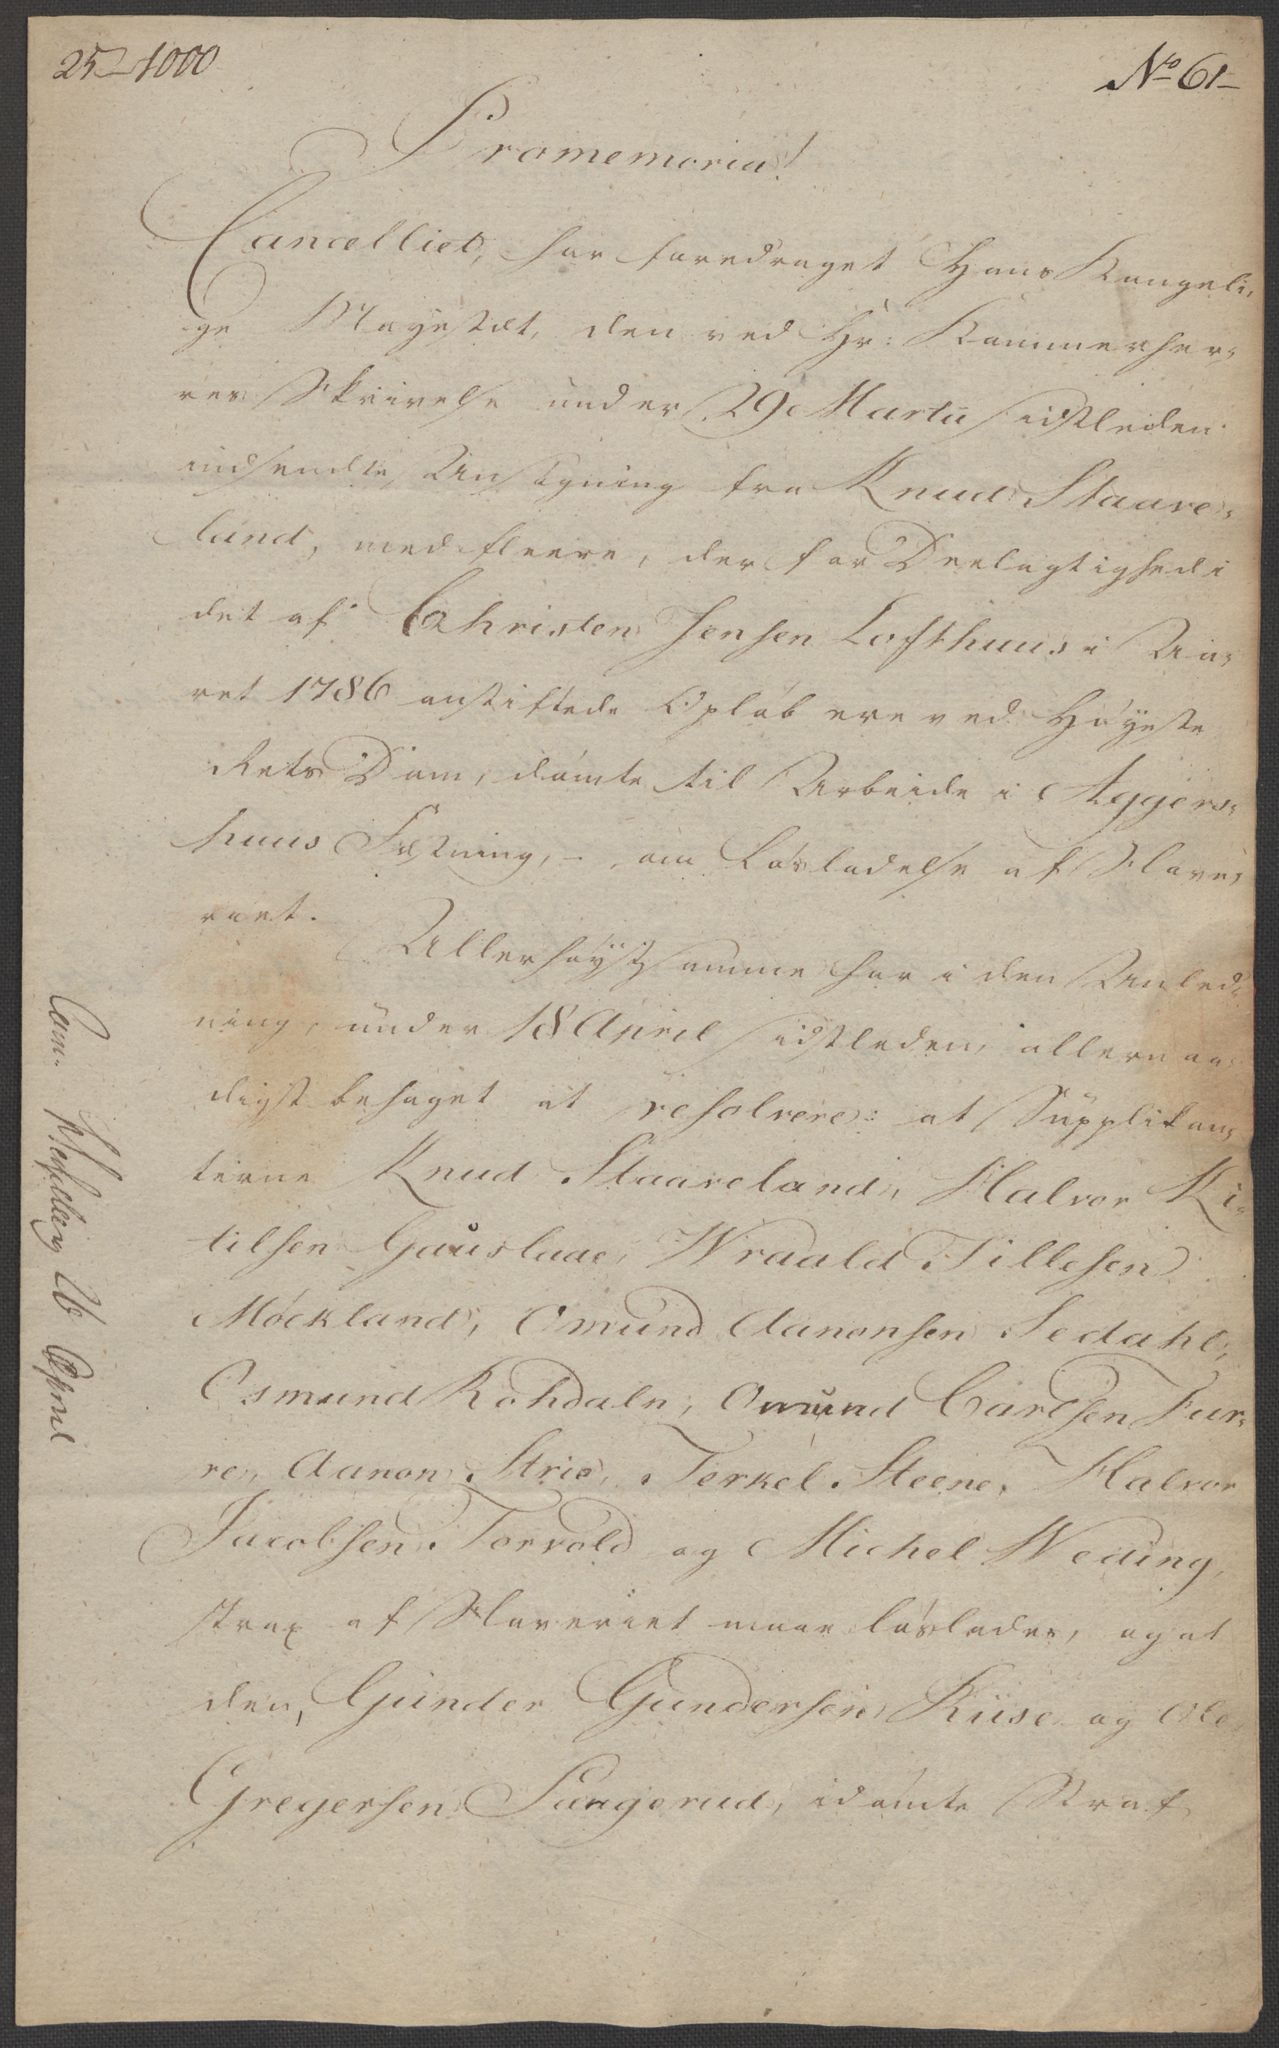 25-1000
No 61-
Promemoria!
Cancelliet, har foredraget Hans Kongeli,
ge Mayestæt, den ved Hr: Kammerher,
res Skrivelse under 29 Martii sidstleden
indsendte Ansögning fra Knud Staare,
land, med fleere, der for Deelagtighed i
det af Christen Jensen Lofthuus i Aa,
ret 1786 anstiftede Opløb ere ved Høyeste
Rets Dom, dømte til Arbeide i Aggers,
huus Fæstning, - om Løsladelse af Slave,
riet.
Allerhøystsamme har i den Anled,
ning, under 18 April sidstleden, allernaa,
digst behaget at resolvere: at Supplikan,
terne Knud Staareland, Halvor Ki,
tilsen Gauslaae, Wraald Tillesen
Møckland, Omund Aanonsen Sedahl,
Osmund Rohdaln, Omund Carlsen Fur,
re, Aanon Strie, Terkel Steene, Halvor
Jacobsen Torvold og Michel Weding,
strax af Slaveriet maae løslades, og at
den, Gunder Gundersen Riise og Ole
Gregersen Sangerud, idømte Straf
Com. 26 April